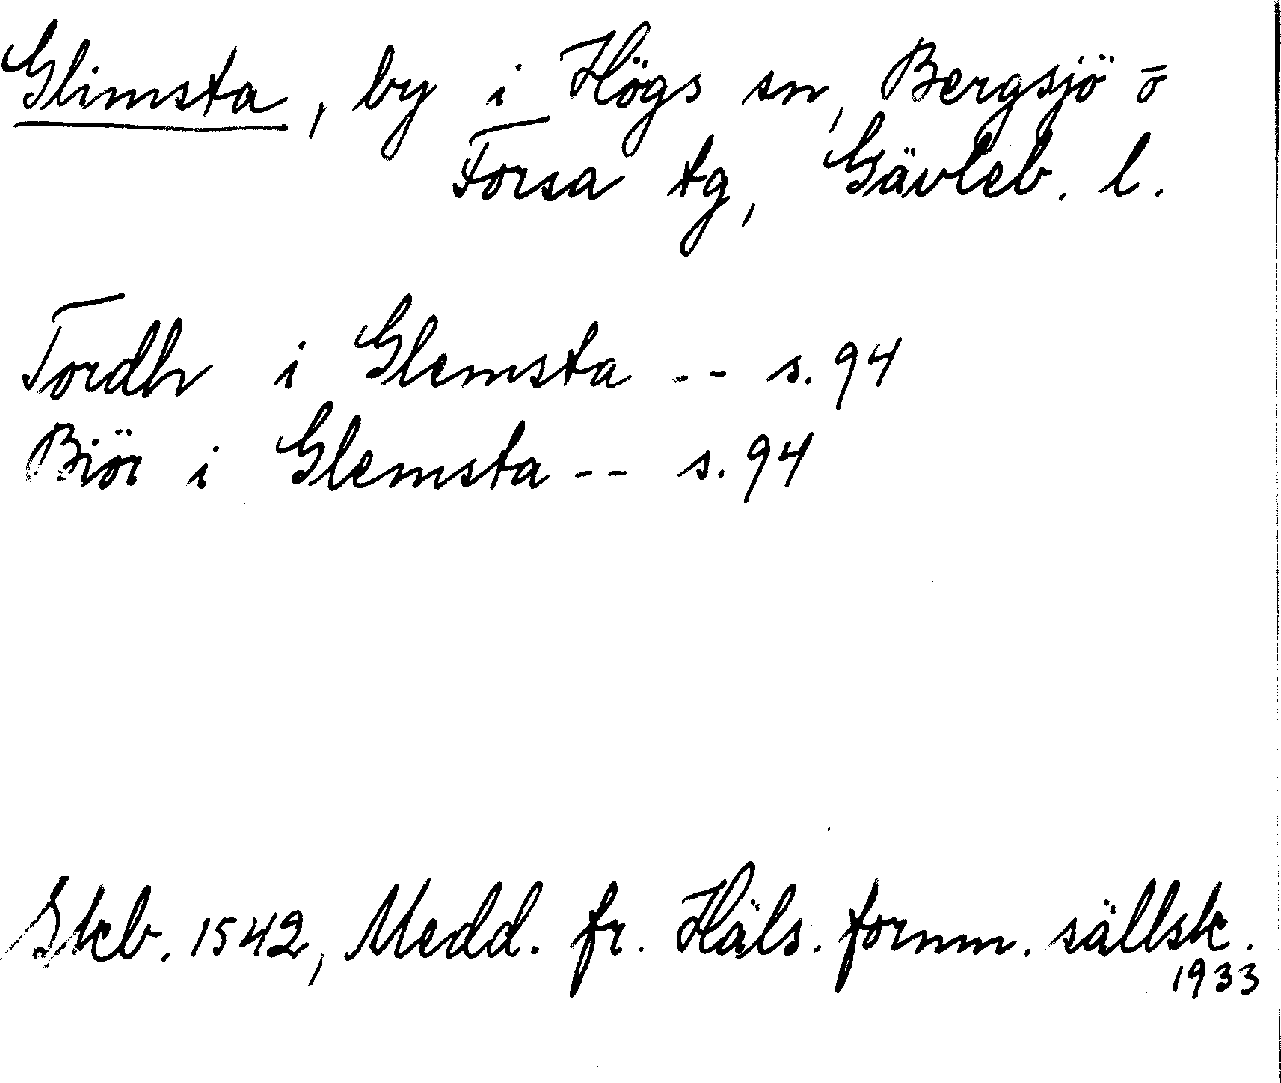 Glimsta, by i Högs sn, Bergsjö o
Forsa tg, Gävleb. l.
Tordh i Glemsta -- s. 94
Biör i Glemsta -- s. 94
Skb. 1542, Medd. fr. Häls. fornm. sällsk.
1933